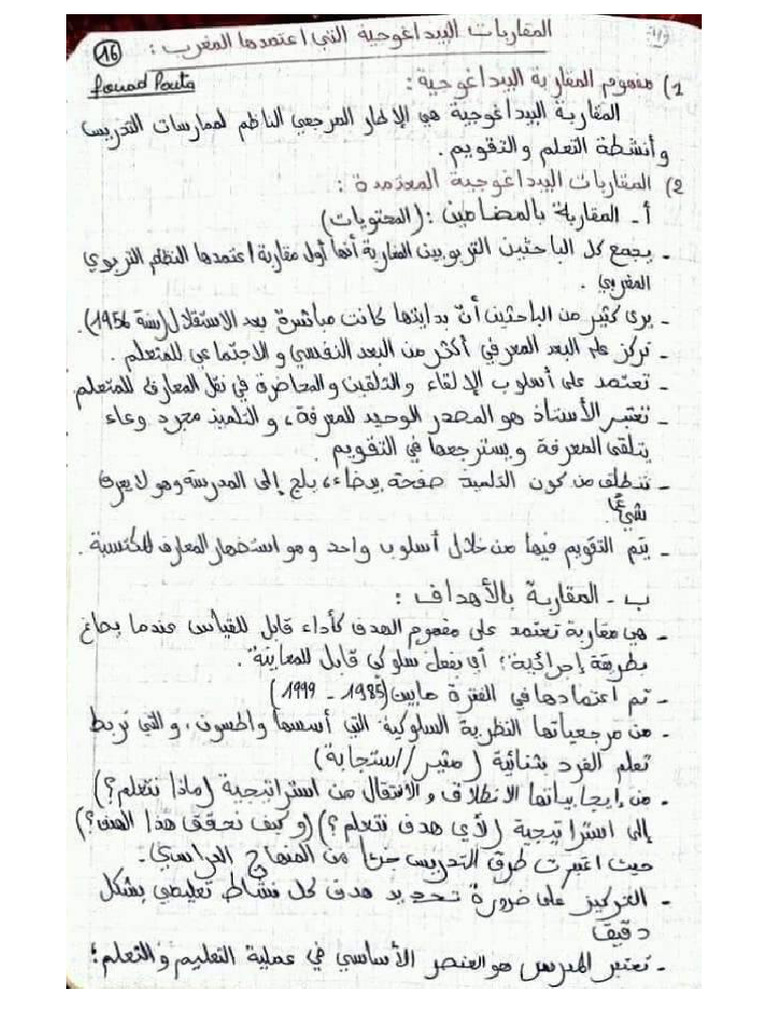 المقاربات البيداغوجية التي اعتمدها المغرب :
16
fouad Pouta
1) مفهوم المقاربة البيداغوجية :
المقاربة البيداغوجية هي الإطار المرجعي الناظم لممارسات التدريس
وأنشطة التعلم والتقويم .
2) المقاربات البيداغوجية المعتمدة :
أ - المقاربة بالمضامين : (المحتويات)
- يجمع كل الباحثين التربويين المغاربة أنها أول مقاربة اعتمدها النظام التربوي
المغربي .
- يرى كثير من الباحثين أن بدايتها كانت مباشرة بعد الاستقلال (سنة 1956).
- تركز على البعد المعرفي أكثر من البعد النفسي والاجتماعي للمتعلم .
- تعتمد على أسلوب الإلقاء والتلقين والمحاضرة في نقل المعارف للمتعلم
- تعتبر الأستاذ هو المصدر الوحيد للمعرفة، والتلميذ مجرد وعاء
يتلقى المعرفة ويسترجعها في التقويم .
- تنطلق من كون التلميذ صفحة بيضاء، يلج إلى المدرسة وهو لا يعرف
شيئا
- يتم التقويم فيها من خلال أسلوب واحد وهو استضهار المعارف المكتسبة .
ب - المقاربة بالأهداف :
- هي مقاربة تعتمد على مفهوم الهدف كأداء قابل للقياس عندما يصاغ
بطريقة إجرائية ؛ أي بفعل سلوكي قابل للمعاينة .
- تم اعتمادها في الفترة ما بين (1985 - 1999)
- من مرجعياتها النظرية السلوكية التي أسسها واطسون، والتي تربط
تعلم الفرد بثنائية (مثير//استجابة)
- من إيجابياتها الانطلاق والانتقال من استراتيجية (ماذا نتعلم؟)
إلى استراتيجية (لأي هدف نتعلم؟) (وكيف نحقق هذا الهدف؟)
حيث اعتبرت طرق التدريس جزءا من المنهاج الدراسي .
- التركيز على ضرورة تحديد هدف كل نشاط تعليمي بشكل
دقيق
- تعتبر المدرس هو العنصر الأساسي في عملية التعليم والتعلم ؛